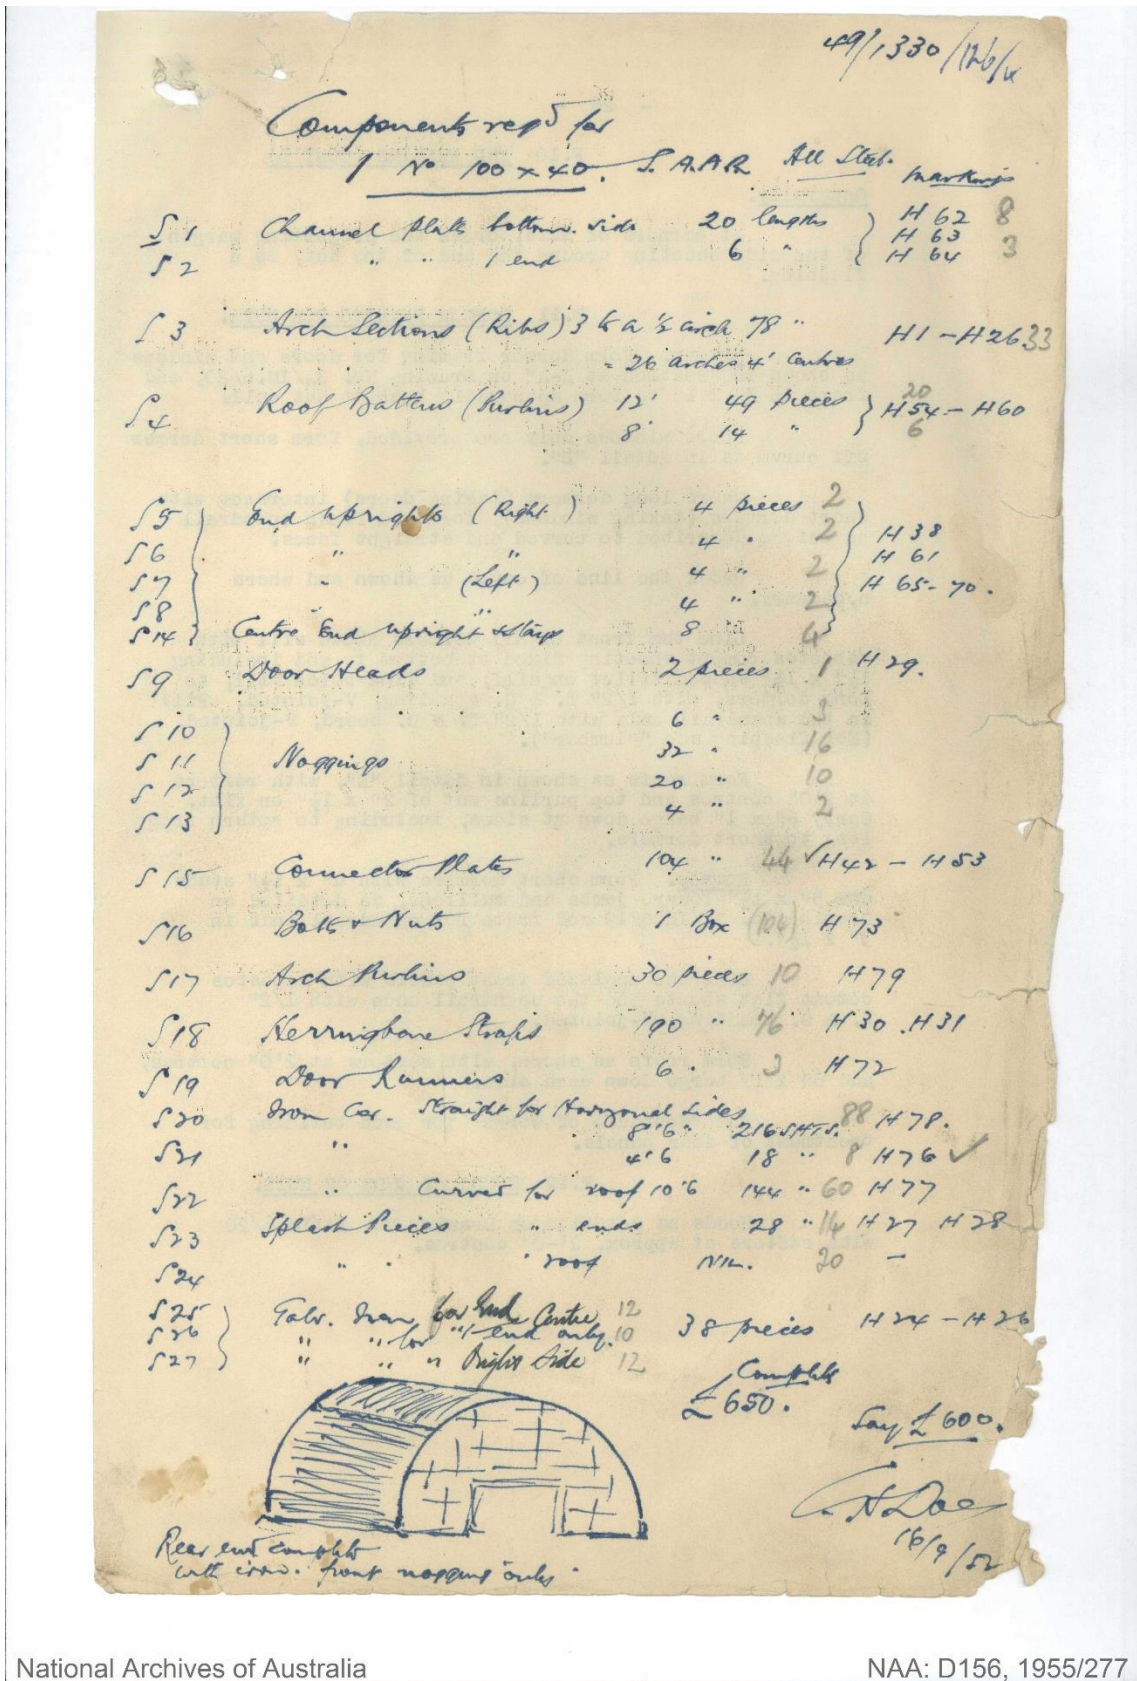 49/1330/126/
Components reqd for
1 No 100 x 40. S.A.A.R. All Steel.
markings
S 1 Channel Plates bottom. side 20 lengths H 62 8
H 63
S 2 " " 1 end 6 " H 64 3
S 3 Arch Sections (Ribs) 3 to a ½ arch 78 " H1 - H26 33
= 26 arches 4' centres
S 4 Roof Battens (Purlins) 12' 49 pieces 20 H54 - H60
8' 14 " 6
S5 End uprights (Right) 4 pieces 2
S6 " " 4 " 2 H 38
H 61
S7 " (Left) 4 " 2 H 65-70.
S8 " 4 " 2
S14 Centre End upright & Stays 8 " 4
S9 Door Heads 2 pieces 1 H29.
S10 6 " 3
S11 Noggings 32 " 16
S12 20 " 10
S13 4 " 2
S15 Connector Plates 104 " 44 ✓ H42 - H53
S16 Bolts & Nuts 1 Box (104) H73
S17 Arch Purlins 30 pieces 10 H79
S18 Herringbone Straps 190 " 76 H30. H31
S19 Door Runners 6 " 3 H72
S20 Iron Cor. Straight for Horizonal Sides
8'6" 216 SHTS. 88 H78.
S21 " 4'6 18 " 8 H76 ✓
S22 " Curved for roof 10'6 144 " 60 H77
S23 Splash Pieces " ends 28 " 14 H27 H28
S24 " " roof NIL. 20 -
S25 Galv. Iron for End Centre 12
S26 " " for " 1 end only. 10 38 pieces H24 - H26
S27 " " " Right Side 12
Complete
£650.
Say £600.
C. N. Doe
16/9/52
Rear end complete
with iron. front nogging only.
National Archives of Australia
NAA: D156, 1955/277